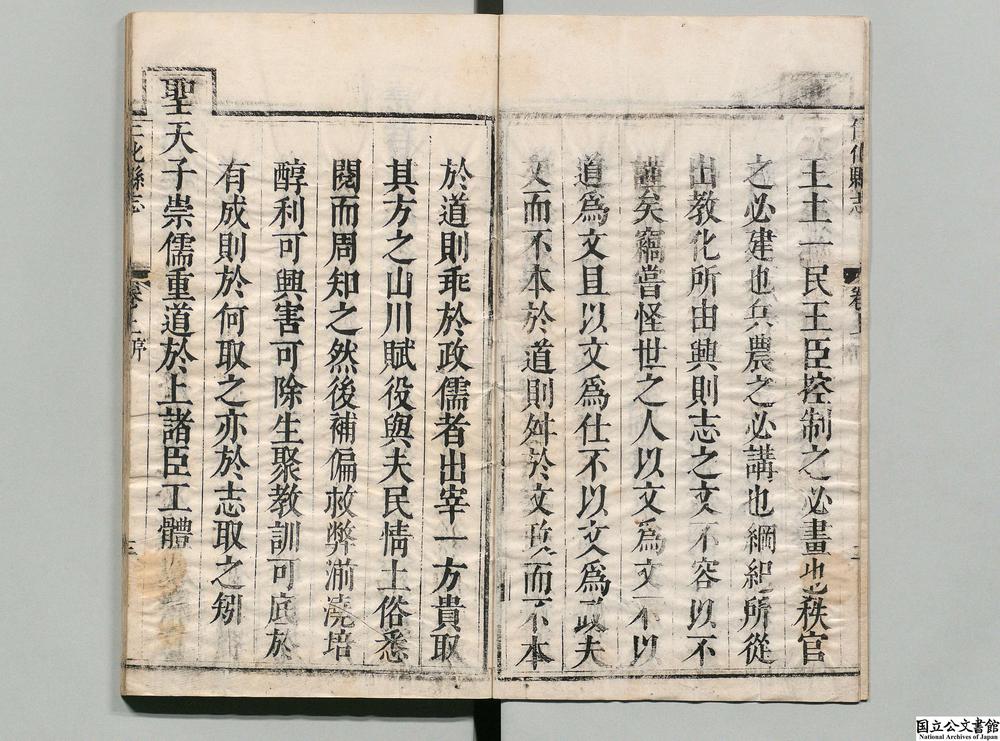 化縣志
王土一民王臣控制之必畫也秩官
之必建也兵農之必講也綱紀所從
出教化所由興則志之文不容以不
謹矣竊嘗怪世之人以文爲文不以
道爲文且以文爲仕不以文爲政夫
文而不本於道則舛於文政而不本
於道則乖於政儒者出宰一方貴取
其方之山川賦役與夫民情土俗悉
閱而周知之然後補偏救弊湔澆培
醇利可興害可除生聚教訓可底於
有成則於何取之亦於志取之矧
聖天子崇儒重道於上諸臣工體
化縣志 序 三
国立公文書館
National Archives of Japan